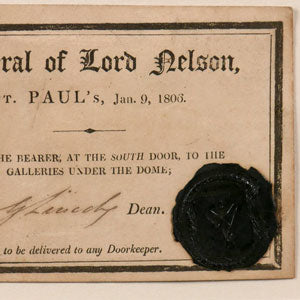 ral of Lord Nelson,
T. PAUL's, Jan. 9, 1806.
HE BEARER, AT THE SOUTH DOOR, TO THE
GALLERIES UNDER THE DOME;
G Lincoln Dean.
to be delivered to any Doorkeeper.